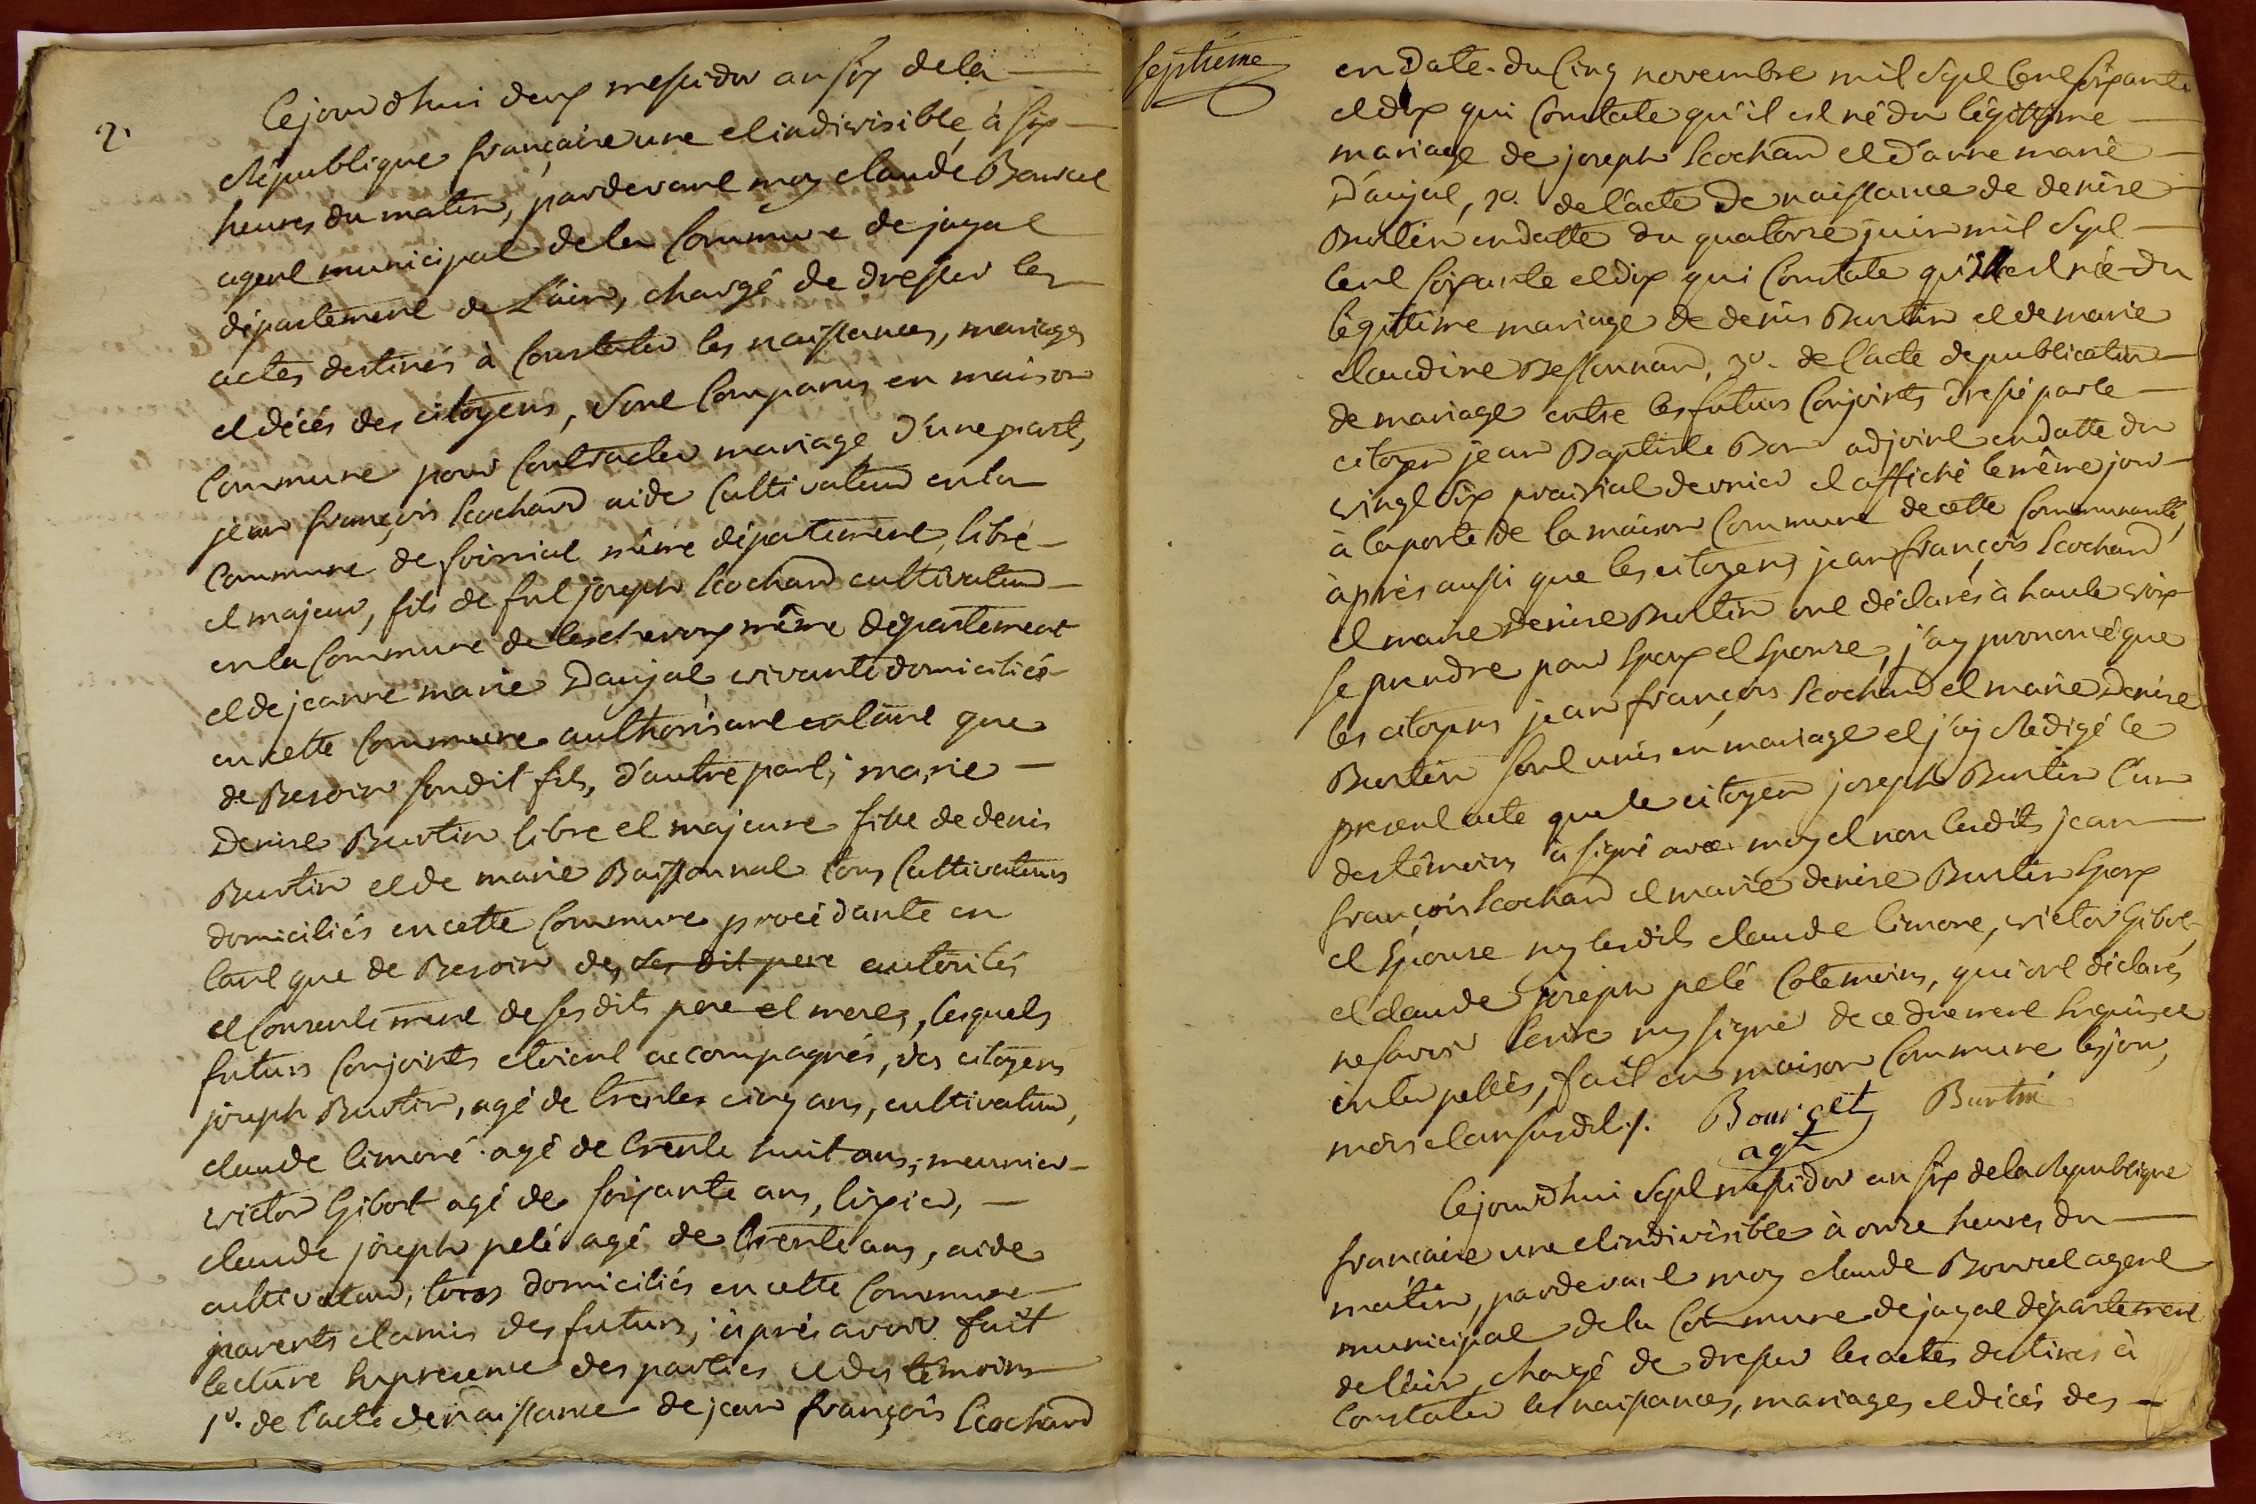 2.
Cejourdhui deux messidor an six dela
République française une et indivisible, à six
heures du matin, pardevant moy claude Bourcet
agent municipal dela Commune de jayat
département de L'ain, chargé de dresser les
actes destinés à Constater les naissances, mariages
et décés des citoyens, sont Comparus en maison
Commune pour Contracter mariage, d'une part,
jean françois Cochard aide Cultivateur en la
Commune de foissiat même département, libre
et majeur, fils de fut joseph Cochard cultivateur
en la Commune de lescheroux même département
et de jeanne marie Daujat vivante domiciliés
en cette Commune authorisant entant que
de Besoin sondit fils, d'autre part, marie
Denise Burtin libre et majeure fille de denis
Burtin et de marie Baissonnat tous Cultivateurs
domiciliés en cette Commune procédante en
tant que de Besoin des des dit pere autorités
et Consentement de ses dits pere et meres, lesquels
futurs Conjoints etoient accompagnés, des citoyens
joseph Burtin, agé de trentes cinq ans, cultivateur,
claude limoné agé de trente huit ans, meunier
victor Gibort agé de soixante ans,
claude joseph pelé agé de trente ans, aide
cultivateur, tous domiciliés en cette Commune
parents et amis des futurs, après avoir fait
lecture En presence des parties et des témoins
1º. de l'acte de naissance de jean françois Cochard
septieme
en Date du Cinq novembre mil Sept Cent soixante
et dix qui Constate qu'il est né du légittime
mariage de joseph Cochard et d'anne marie
Daujat, 2º. de l'acte de naissance de denise
Burtin en datte du quatorze juin mil Sept
Cent soixante et dix qui Constate qu'Elle est née du
légittime mariage de denis Burtin et de marie
claudine Bessonnard, 3º. de l'acte de publication
de mariage entre les futurs Conjoints dressé par le
citoyen jean Baptiste Bon adjoint en datte du
vingt Six prairial dernier et affiché le même jour
à la porte de la maison Commune de cette Communauté,
après aussi que les citoyens jean françois Cochard
et marie Denise Burtin ont déclarés à haute voix
se prendre pour Epoux et Epouse, j'ay prononcé que
les citoyens jean françois Cochard et marie Denise
Burtin sont unis en mariage et j'aj Redigé le
present acte que le citoyen joseph Burtin l'un
des témoins à signé avec moy et non lesdits jean
françois Cochard et marie denise Burtin Epoux
et Epouse ny lesdits claude limone, victor Gibort,
et claude joseph pelé Cotemoins, qui ont déclarés
ne savoir Ecrire ny signer de ce duement Enquis et
interpellés, fait en maison Commune les jour,
mois et an susdit ./. Bourcet Burtin
agt
Cejourdhui Sept messidor an six de la Republique
francaise une et indivisible à onze heures du
matin, pardevant moy claude Bourcet agent
municipal dela Commune de jayat département
de l'ain, chargé de dresser les actes destinés à
Constater les naissances, mariages et décés des